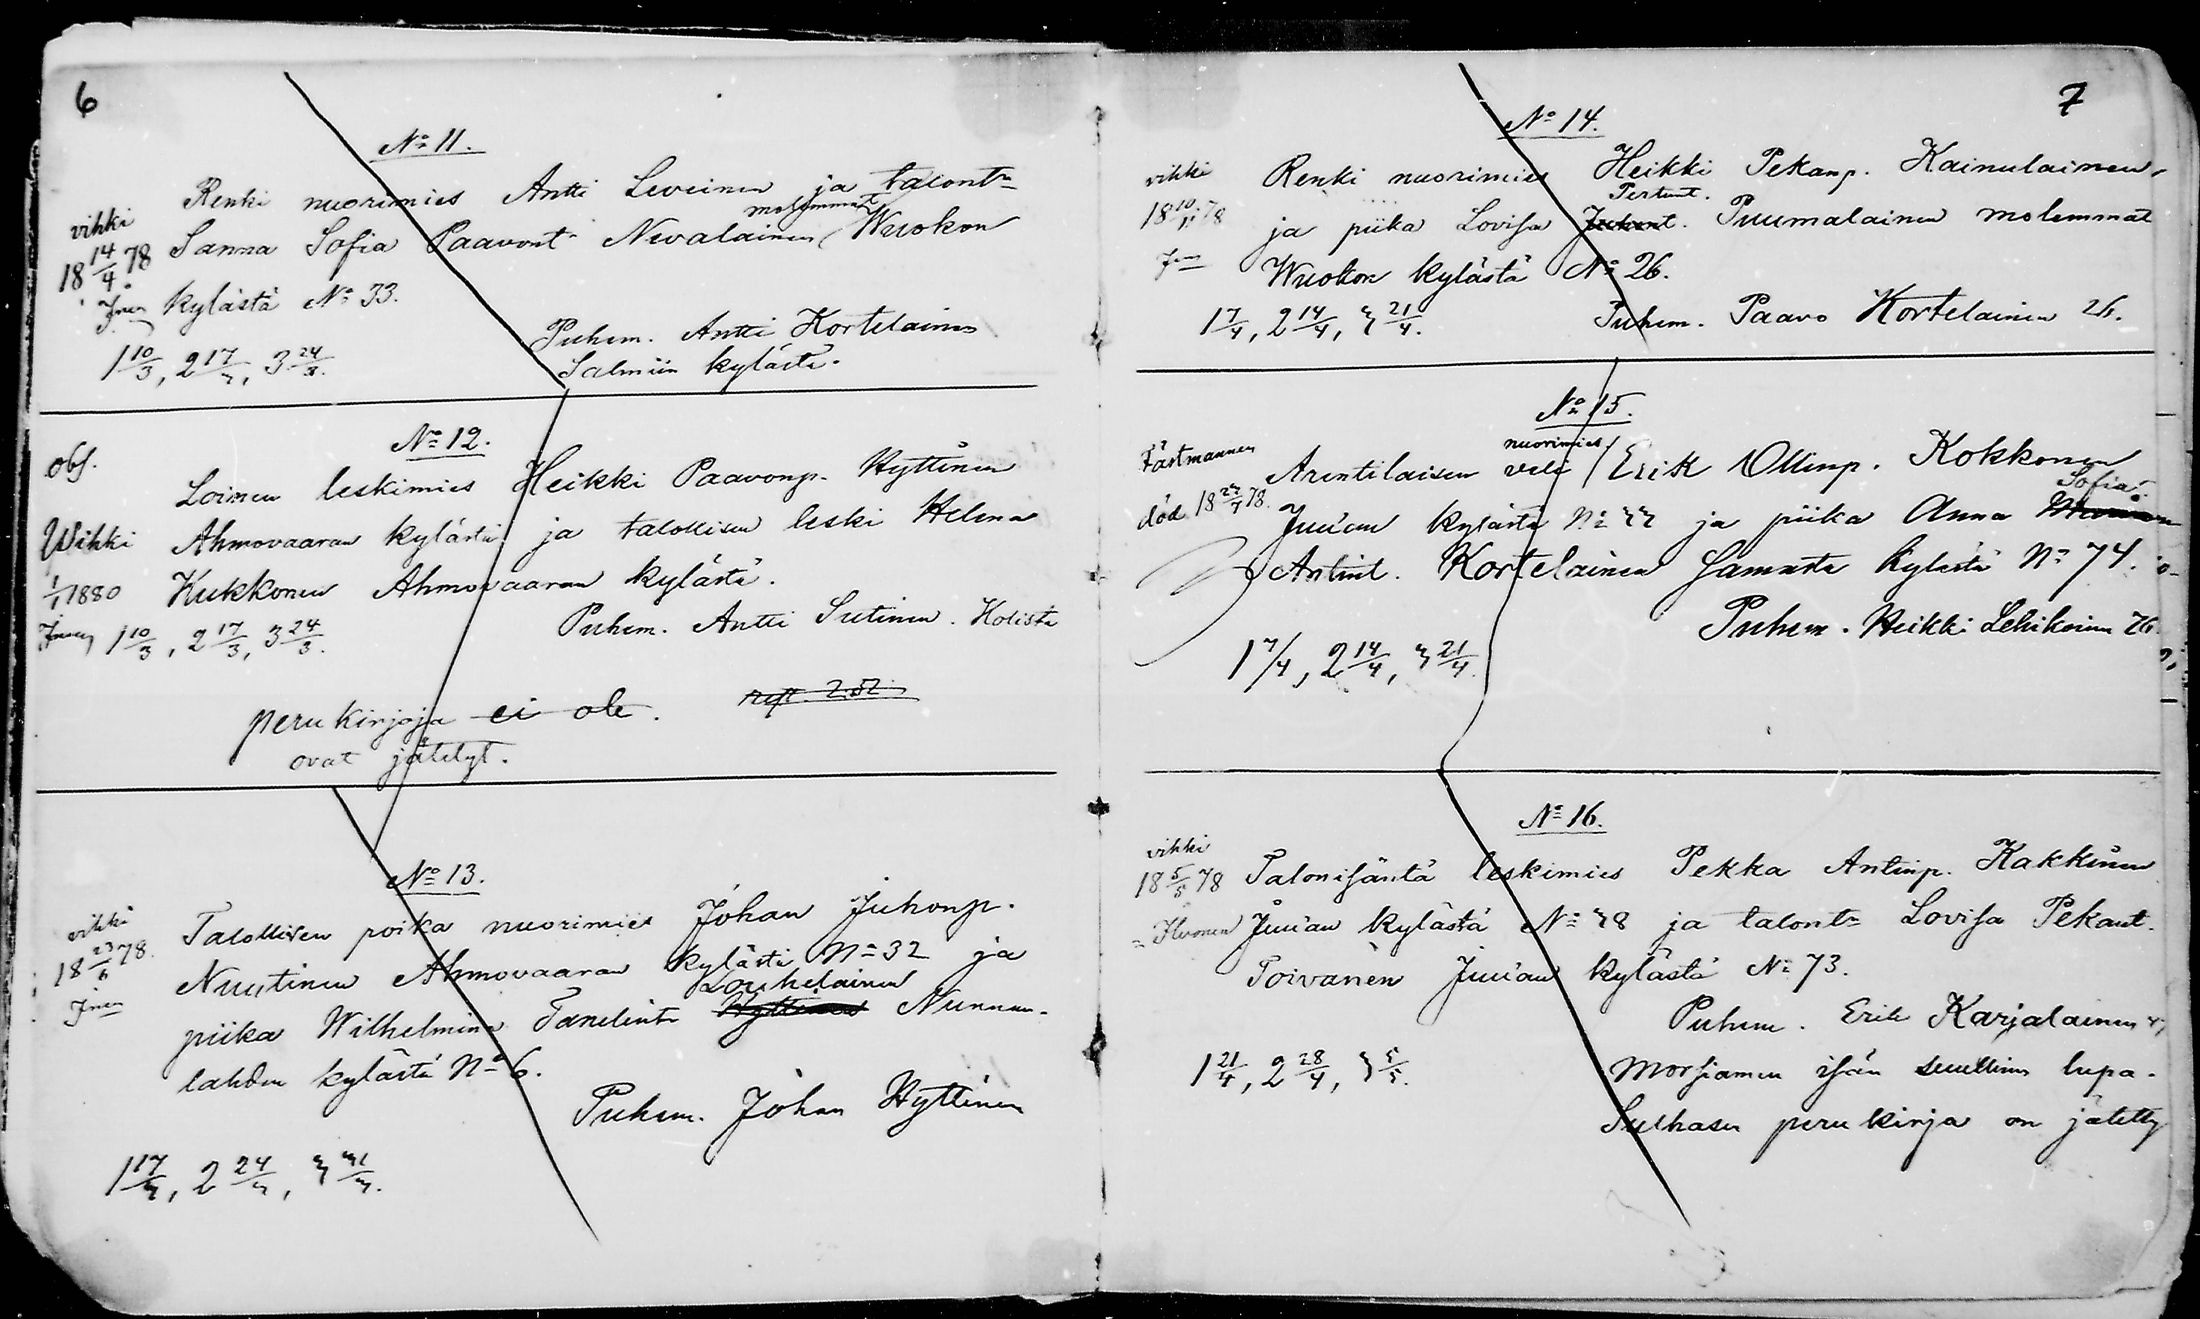 6
No 11.
Renki nuorimies Antti Leveinen ja talont:
vihki
molemmat
Sanna Sofia Paavont: Nevalainen Wuokon
18 14/4 78
kylästä No 33.
Puhem. Antti Kortelainen
1 10/3, 2 17/3, 3 24/3.
Salmiin kylästä.
No 12.
obs.
Loinen leskimies Heikki Paavonp. Hyttinen
Wihki Ahmovaaran kylästä ja talollisen leski Helena
1/1 1880 Kukkonen Ahmovaaran kylästä.
Puhem. Antti Sutinen. Kolista
1 10/3, 2 17/3, 3 24/3.
perukirjoja ei ole.
ovat jätetyt.
No 13.
vihki
Talollisen poika nuorimies Johan Juhonp.
18 23/6 78.
Nuutinen Ahmovaaran kylästä No 32 ja
Louhelainen
piika Wilhelmina Tanelint: Hyttinen Nunnan-
lahden kylästä No 6.
Puhem. Johan Hyttinen
1 17/3, 2 24/3, 3 31/3.
7
No 14.
vihki
Renki nuorimies Heikki Pekanp. Kainulainen,
Pertunt.
18 10/11 78
ja piika Lovisa Juhont. Puumalainen molemmat
Wuokon kylästä No 26.
1 7/4, 2 14/4, 3 21/4.
Puhem. Paavo Kortelainen 26.
No 15.
nuorimies
Fästmannen
Arentilaisen veli Erik Ollinp. Kokkonen
Sofia
död 18 78.
Juuan kylästä No 33 ja piika Anna
Antint. Kortelainen samasta kylästä No 74.
Puhem. Heikki Lehikoinen 76.
1 7/4, 2 14/4, 3 21/4.
No 16.
vihki
18 5/5 78 Talonisäntä leskimies Pekka Antinp. Kakkinen
Juuan kylästä No 38 ja talont: Lovisa Pekant.
Toivanen Juuan kylästä No 73.
Puhem. Erik Karjalainen 47
1 21/4, 2 28/4, 3 5/5.
Morsiamen isän suullinen lupa.
Sulhasen perukirja on jätetty